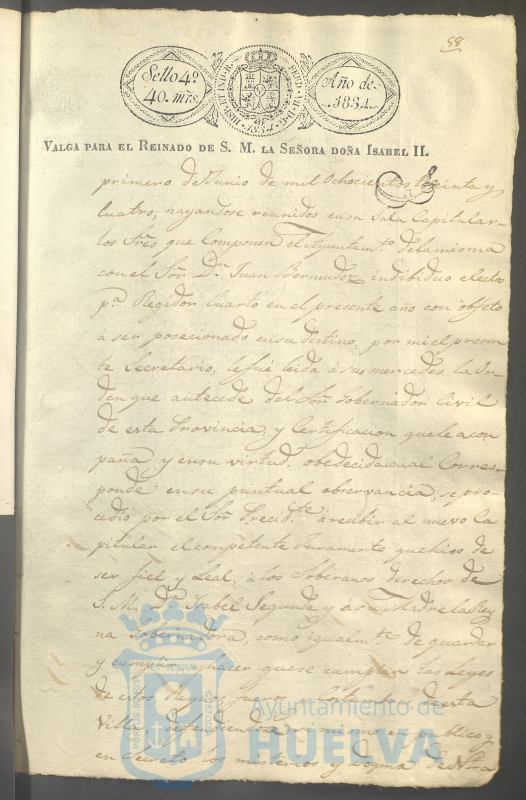 88
Sello 4º
40. mrs.
HISP. ET IND. R.
1834
Año de
1834.
VALGA PARA EL REINADO DE S. M. LA SEÑORA DOÑA ISABEL II.
primero de Junio de mil Ochocientos treinta y
cuatro, hayandose reunidos en su Sala Capitular
los Sres. que Componen el Ayuntamto. de la misma
con el Sor. Dn. Juan Bermudez indibiduo electo
pa. Regidor Cuarto en el presente año con objeto
a ser posecionado en su destino, por mi el presen
te Secretario, le fué leida á sus mercedes la Or
den que antecede del Sor. Gobernador Civil
de esta Provincia, y Certificacion que le acom
paña y en su virtud, obedecida cual Corres
ponde en su puntual observancia, se pro
cedió por el Sor. Presidte. á recibir al nuevo Ca
pitular el competente Juramento que hiso de
ser fiel y Leal, á los Soberanos derechos de
S. M. Da. Isabel Segunda y á su Madre la Rey
na Gobernadora, como igualmte. de guardar
y cumplir y hacer que se cumplan las Leyes
de estos Reynos de esta
Villa, defendiendo en público y
en secreto los misterios y Dogma de Ntra
Ayuntamiento de
HUELVA